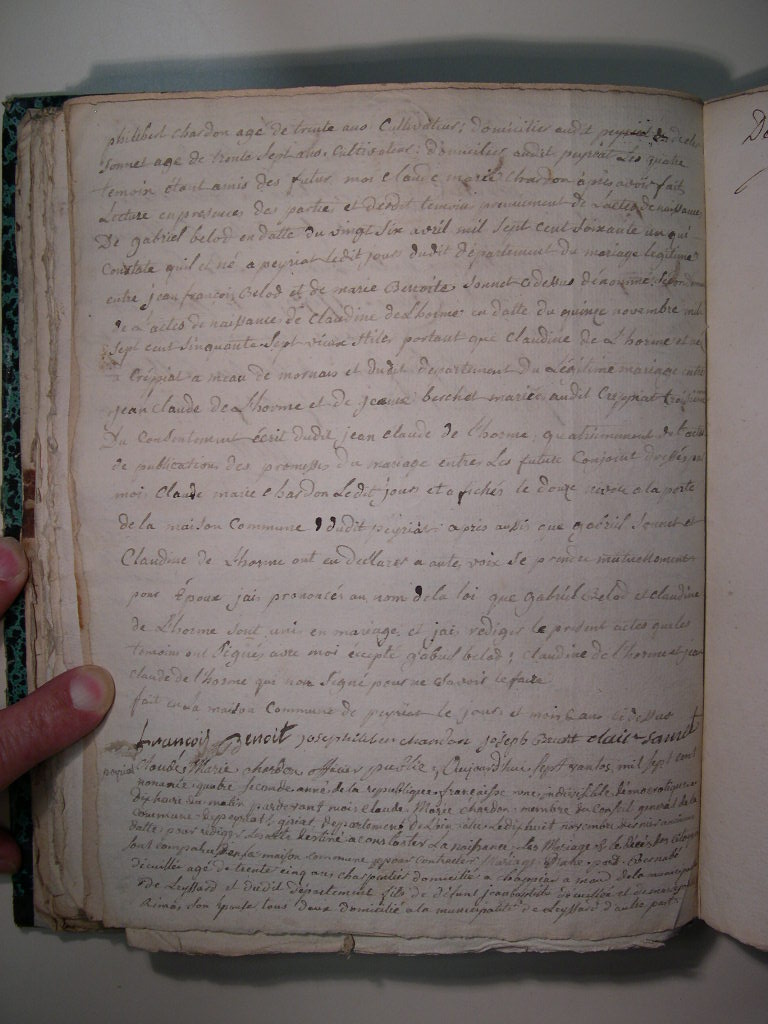 philibert chardon age de trente ans Cultivateur; domicilier audit peyriat
Sonnet age de trente Sept ans, Cultivateur; domicilier audit peyriat Les quatre
temoin étant amis des futur moi Claude marie Chardon après avoir fait
Lecture en presences des partie et desdit temoin premierment de Lactes de naissance
De gabriel belod en datte du vingt six avril mil sept cent soixante un qui
Constate quil et né a peyriat ledit jour dudit département du mariage legitime
entre jean françois Belod et de marie Benoite Sonnet
de Lactes de naissance de Claudine de Lhorme en datte du quinze novembre mil
Sept cent Sinquante Sept vieux stile portant que Claudine de L'horme et né
a Creppiat a meau de mornais et dudit departement du Légitime mariage entre
jean Claude de Lhorme et de jeanne berchet mariée audit Creppiat troisieme
Du Consentement écrit dudit jean claude de l'horme; quatriemement de l'actes
de publications des promesses du mariage entres Les future Conjoint dressés
mois Claude marie Chardon Ledit jours et afichés le douze a la porte
de la maison Commune dudit peyriat après aussi que gabriel Sonnet et
Claudine de Lhorme ont eu declarer a aute voix se prendre mutuellement
pour Epoux jais prononcés au nom de la loi que gabriel belod et claudine
de L'horme sont unis en mariage et jais rediger le present actes que les
temoins ont signés avec moi excepté gabriel belod; Claudine de l'horme et jean
claude de l'horme qui non signé pour ne savoir le faire
fait en la maison Commune de peyriat le jours et mois & ans ci dessus
françois Benoit joseph philiber chardon joseph clair sonnet
Claude Marie chardon officier public, Aujourdhui sept mil sept cent
nonante quatre seconde anné de la republique francaisse une indivisible democratique a
dix heure du matin pardevant moi Claude Marie Chardon membre du Conseil general de la
Commune de peyriat departement de Lain elu ledixhuit novembre dernier
datte pour rediger les acte destiné a constaster La naissance, Les Mariage & le décès des citoyens
sont comparus dans la maison commune pour contracter Mariage Dune part Bernabé
agé de trente cinq ans charpentier domicilié a de la municipalité
de Leyssard et dudit département fils de défunt jean baptiste
son epoute tous deux domicilié a la municipalité de Leyssard d'autre part